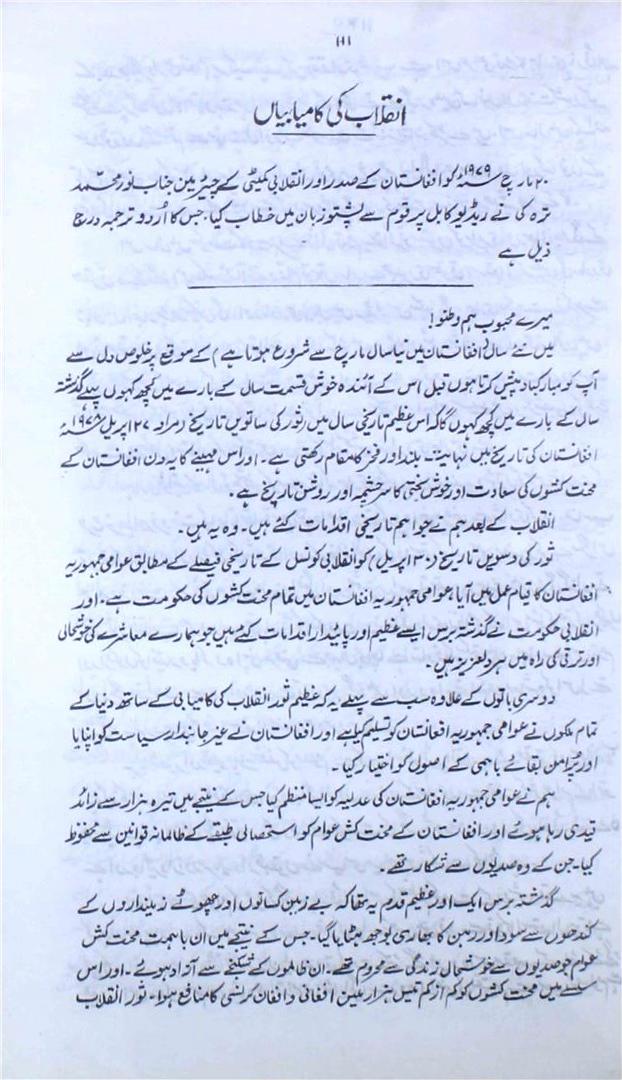 ۱۱۱
انقلاب کی کامیابیاں
۲۰ مارچ ۱۹۷۹ء کو افغانستان کے صدر اور انقلابی کمیٹی کے چیئرمین جناب نور محمد
ترہ کی نے ریڈیو کابل پر قوم سے پشتو زبان میں خطاب کیا، جس کا اُردو ترجمہ درج
ذیل ہے
میرے محبوب ہم وطنو!
میں نئے سال (افغانستان میں نیا سال مارچ سے شروع ہوتا ہے) کے موقع پر خلوص دل سے
آپ کو مبارکباد پیش کرتا ہوں قبل اس کے آئندہ خوش قسمت سال کے بارے میں کچھ کہوں پہلے گذشتہ
سال کے بارے میں کچھ کہوں گا کہ اس عظیم تاریخی سال میں (ثور کی ساتویں تاریخ) مراد ۲۷ اپریل ۱۹۷۸ء
افغانستان کی تاریخ میں نہایت بلند اور فخر کا مقام رکھتی ہے۔ اور اس مہینے کا یہ دن افغانستان کے
محنت کشوں کی سعادت اور خوش بختی کا سرچشمہ اور روشن تاریخ ہے۔
انقلاب کے بعد ہم نے جو اہم تاریخی اقدامات کئے ہیں۔ وہ یہ ہیں۔
ثور کی دسویں تاریخ (۳۰ اپریل) کو انقلابی کونسل کے تاریخی فیصلے کے مطابق عوامی جمہوریہ
افغانستان کا قیام عمل میں آیا، عوامی جمہوریہ افغانستان میں تمام محنت کشوں کی حکومت ہے۔ اور
انقلابی حکومت نے گذشتہ برس ایسے عظیم اور پائیدار اقدامات کئے ہیں جو ہمارے معاشرے کی خوشحالی
اور ترقی کی راہ میں ہر دلعزیز ہیں۔
دوسری باتوں کے علاوہ سب سے پہلے یہ کہ عظیم ثور انقلاب کی کامیابی کے ساتھ دنیا کے
تمام ملکوں نے عوامی جمہوریہ افغانستان کو تسلیم کیا ہے اور افغانستان نے غیر جانبدار سیاست کو اپنایا
اور پُرامن بقائے باہمی کے اصول کو اختیار کیا۔
ہم نے عوامی جمہوریہ افغانستان کی عدلیہ کو ایسا منظم کیا جس کے نتیجے میں تیرہ ہزار سے زائد
قیدی رہا ہوئے اور افغانستان کے محنت کش عوام کو استحصالی طبقے کے ظالمانہ قوانین سے محفوظ
کیا۔ جن کے وہ صدیوں سے شکار تھے۔
گذشتہ برس ایک اور عظیم قدم یہ تھا کہ بے زمین کسانوں اور چھوٹے زمینداروں کے
کندھوں سے سود اور رہن کا بھاری بوجھ ہٹایا گیا۔ جس کے نتیجے میں ان باہمت محنت کش
عوام جو صدیوں سے خوشحال زندگی سے محروم تھے۔ ان ظالموں کے شکنجے سے آزاد ہوئے۔ اور اس
سلسلے میں محنت کشوں کو کم از کم تیس ہزار ملین افغانی (افغان کرنسی) کا منافع ہوا۔ ثور انقلاب